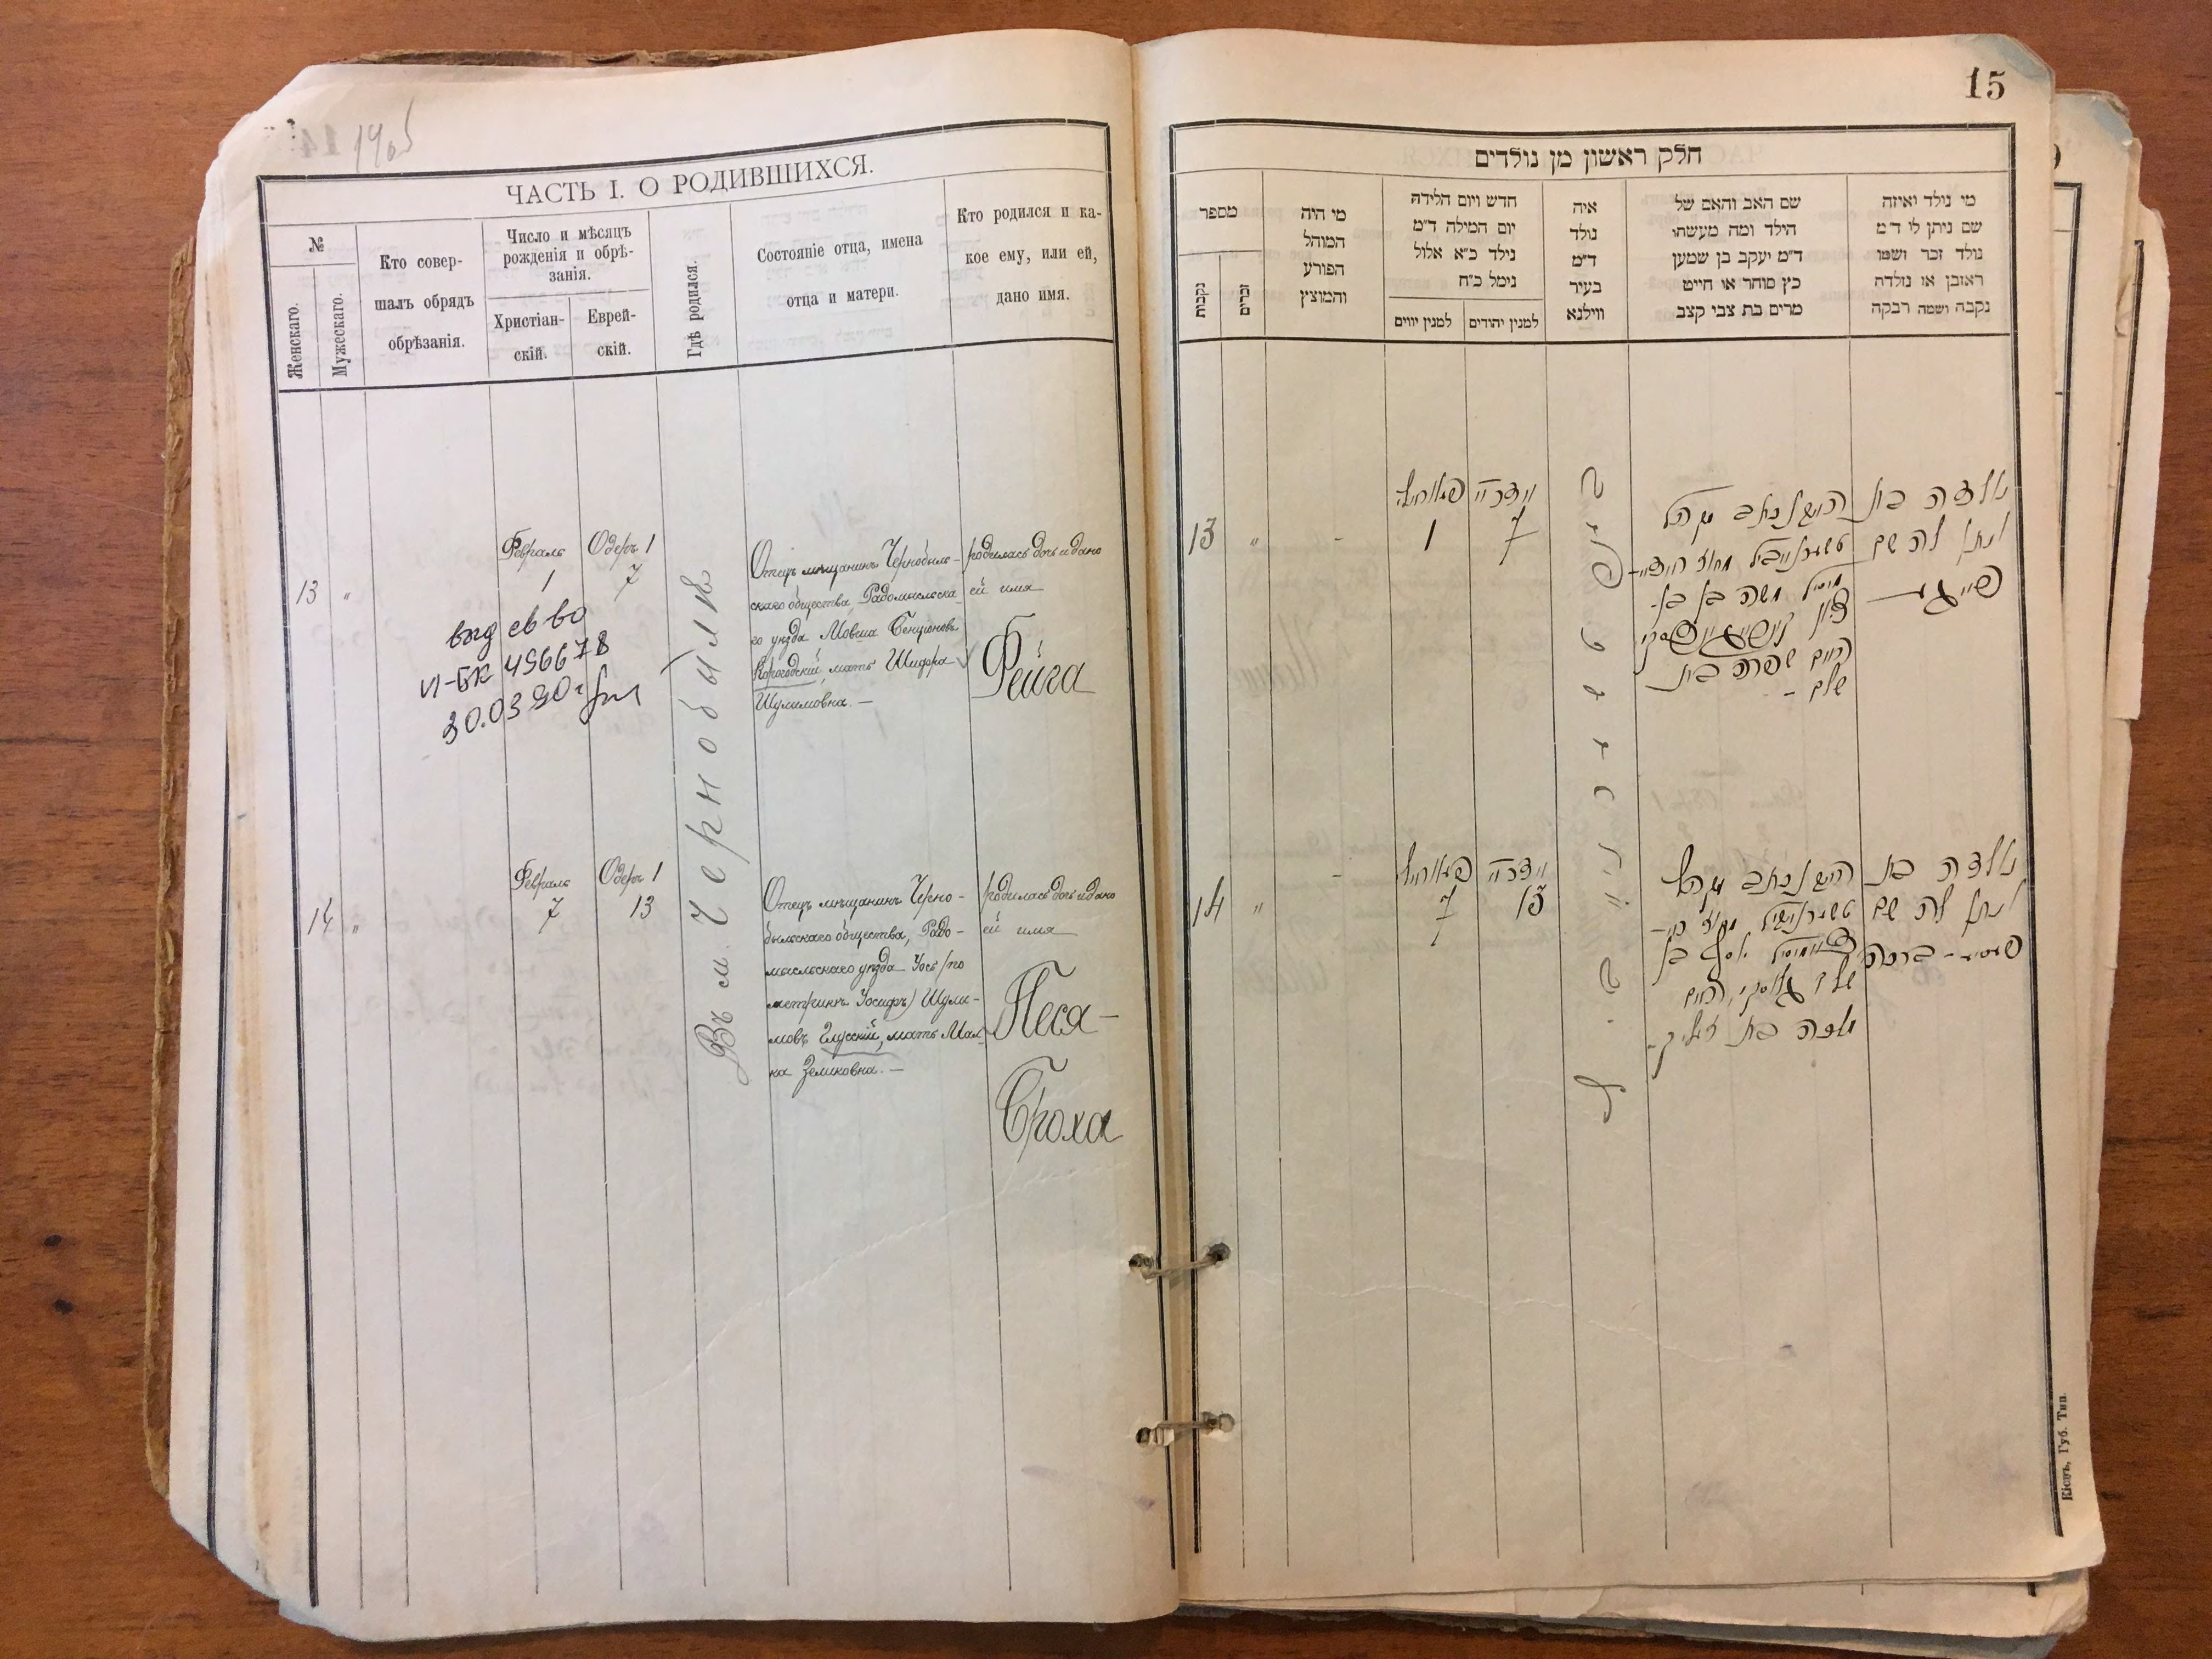 1905
ЧАСТЬ I. О РОДИВШИХСЯ.
№
Женскаго.
Мужескаго.
Кто совер-
шалъ обрядъ
обрѣзанія.
Число и мѣсяцъ
рожденія и обрѣ-
занія.
Христіан-
скій.
Еврей-
скій.
Гдѣ родился.
Состояніе отца, имена
отца и матери.
Кто родился и ка-
кое ему, или ей,
дано имя.
13 "
Февраль
1
Одеръ 1
7
выд св во
VI-БК 456678
30.03.90г
Въ м. Чернобылѣ
Отецъ мѣщанинъ Чернобыль-
скаго общества, Радомысльска-
го уѣзда Мовша Бенціоновъ
Корогодскій, мать Шифра
Шулимовна. —
родилась дочь и дано
ей имя
Фейга
14 "
Февраль
7
Одеръ 1
13
Отецъ мѣщанинъ Черно-
быльскаго общества, Радо-
мысльскаго уѣзда Іось /по
метрикѣ Іосифъ/ Шули-
мовъ Глускій, мать Мал-
ка Зеликовна. —
родилась дочь и дано
ей имя
Песя-
Броха
15
חלק ראשון מן נולדים
מספר
נקבות
זכרים
מי היה
המוהל
הפורע
והמוצץ
חדש ויום הלידה
יום המילה ד"מ
נילד כ"א אלול
נימל כ"ח
למנין יווים
למנין יהודים
איה
נולד
ד"מ
בעיר
ווילנא
שם האב והאם של
הילד ומה מעשהו
ד"מ יעקב בן שמען
כץ סוחר או חייט
מרים בת צבי קצב
מי נולד ואיזה
שם ניתן לו ד"מ
נולד זכר ושמו
ראובן או נולדה
נקבה ושמה רבקה
13 " -
1
7
נולדה בת
ונתן לה שם
פייגע
משה בן בן-
ציון
האם שפרה בת
שלם -
14 " -
7
13
נולדה בת
ונתן לה שם
פעסיע - ברכה
יוסף בן
האם
מלכה בת זעליק -
Кіевъ, Губ. Тип.